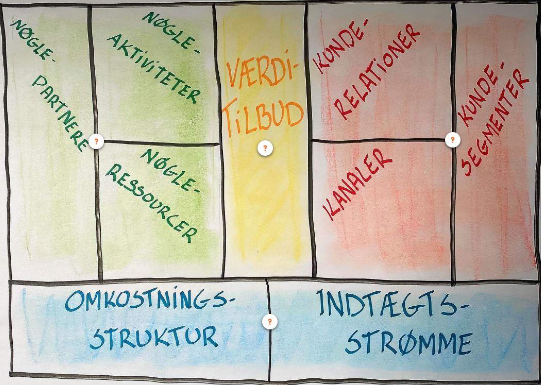 NØGLE-
PARTNERE
NØGLE-
AKTIVITETER
NØGLE-
RESSOURCER
VÆRDI-
TILBUD
KUNDE-
RELATIONER
KANALER
KUNDE-
SEGMENTER
OMKOSTNINGS-
STRUKTUR
INDTÆGTS-
STRØMME
?
?
?
?